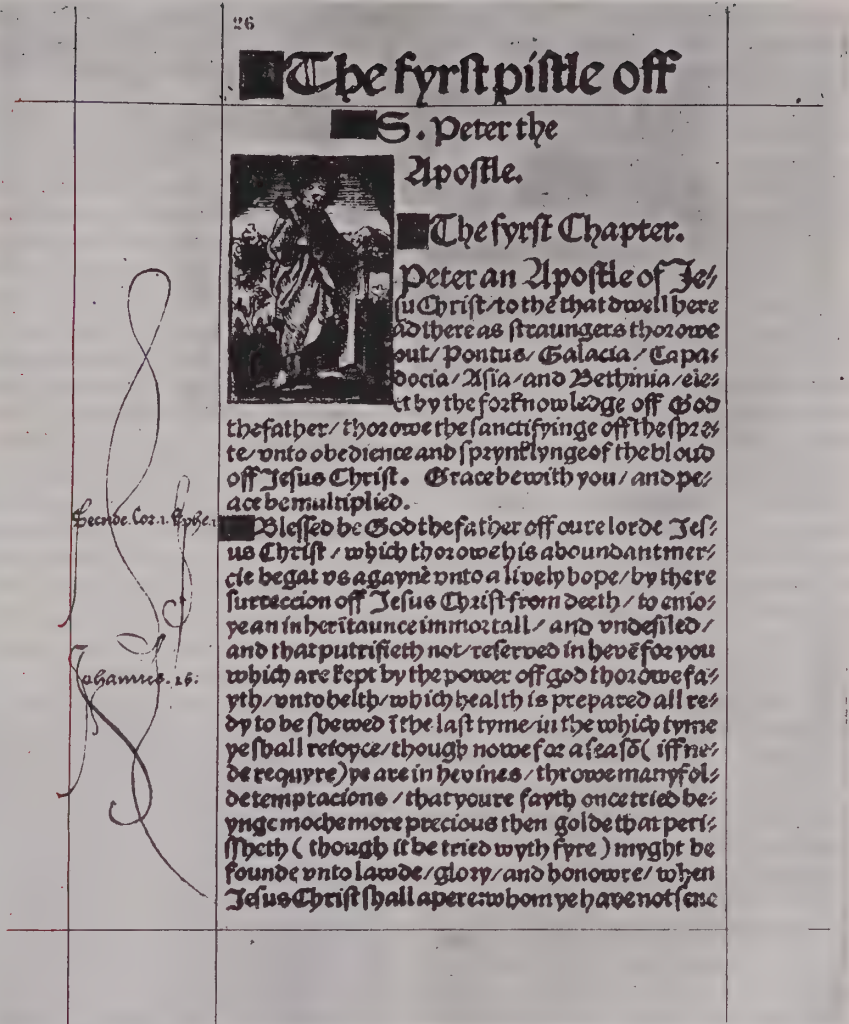 26
The fyrst pistle off
S. Peter the
Apostle.
The fyrst Chapter.
Peter an Apostle of Je⸗
su Christ/ to thē that dwell here
ād there as straungers thorowe
out/ Pontus/ Galacia/ Capa⸗
docia/ Asia/ and Bethinia/ ele⸗
ct by the forknowledge off God
the father/ thorowe the sanctifyinge off the spre⸗
te/ vnto obedience and sprynklynge of the bloud
off Jesus Christ. Grace be with you/ and pe⸗
ace be multiplied.
Blessed be God the father off oure lorde Jes⸗
us Christ/ which thorowe his aboundant mer⸗
cie begat vs agayne vnto a lively hope/ by the re
surreccion off Jesus Christ from deeth/ to enio⸗
ye an inheritaunce immortall/ and vndefiled/
and that putrifieth not/ reserved in hevē for you
which are kept by the power off god thorowe fa⸗
yth/ vnto helth/ which health is prepared all re⸗
dy to be shewed ī the last tyme/ in the which tyme
ye shall reioyce/ though nowe for a seasō( iff ne⸗
de requyre) ye are in hevines/ throwe manyfol⸗
de temptacions/ that youre fayth once tried be⸗
ynge moche more precious then golde that peri⸗
ssheth ( though it be tried wyth fyre ) myght be
founde vnto lawde/ glory/ and honowre/ when
Jesus Christ shall apere: whom ye have not sene
Secnde. Cor. 1. Ephe. 1
Johannes. 16: